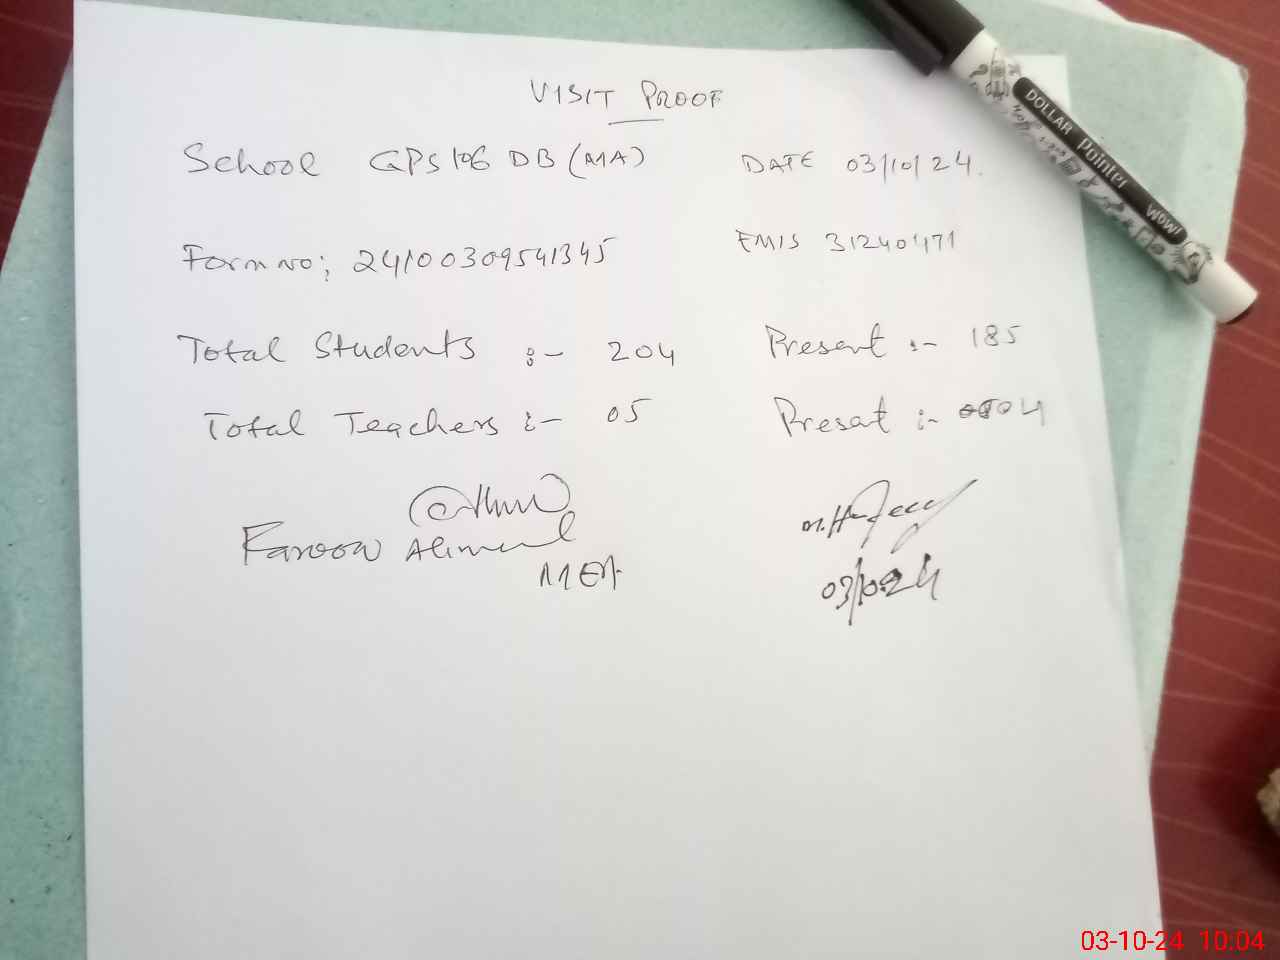 VISIT PROOF
School GPS 106 DB (MA) DATE 03/10/24.
Form no; 24100309541345 EMIS 31240471
Total Students :- 204 Present :- 185
Total Teachers :- 05 Presat :- 04
Farooq Ahmed
MEA
03/10.24
DOLLAR Pointer WOW!
03-10-24 10:04